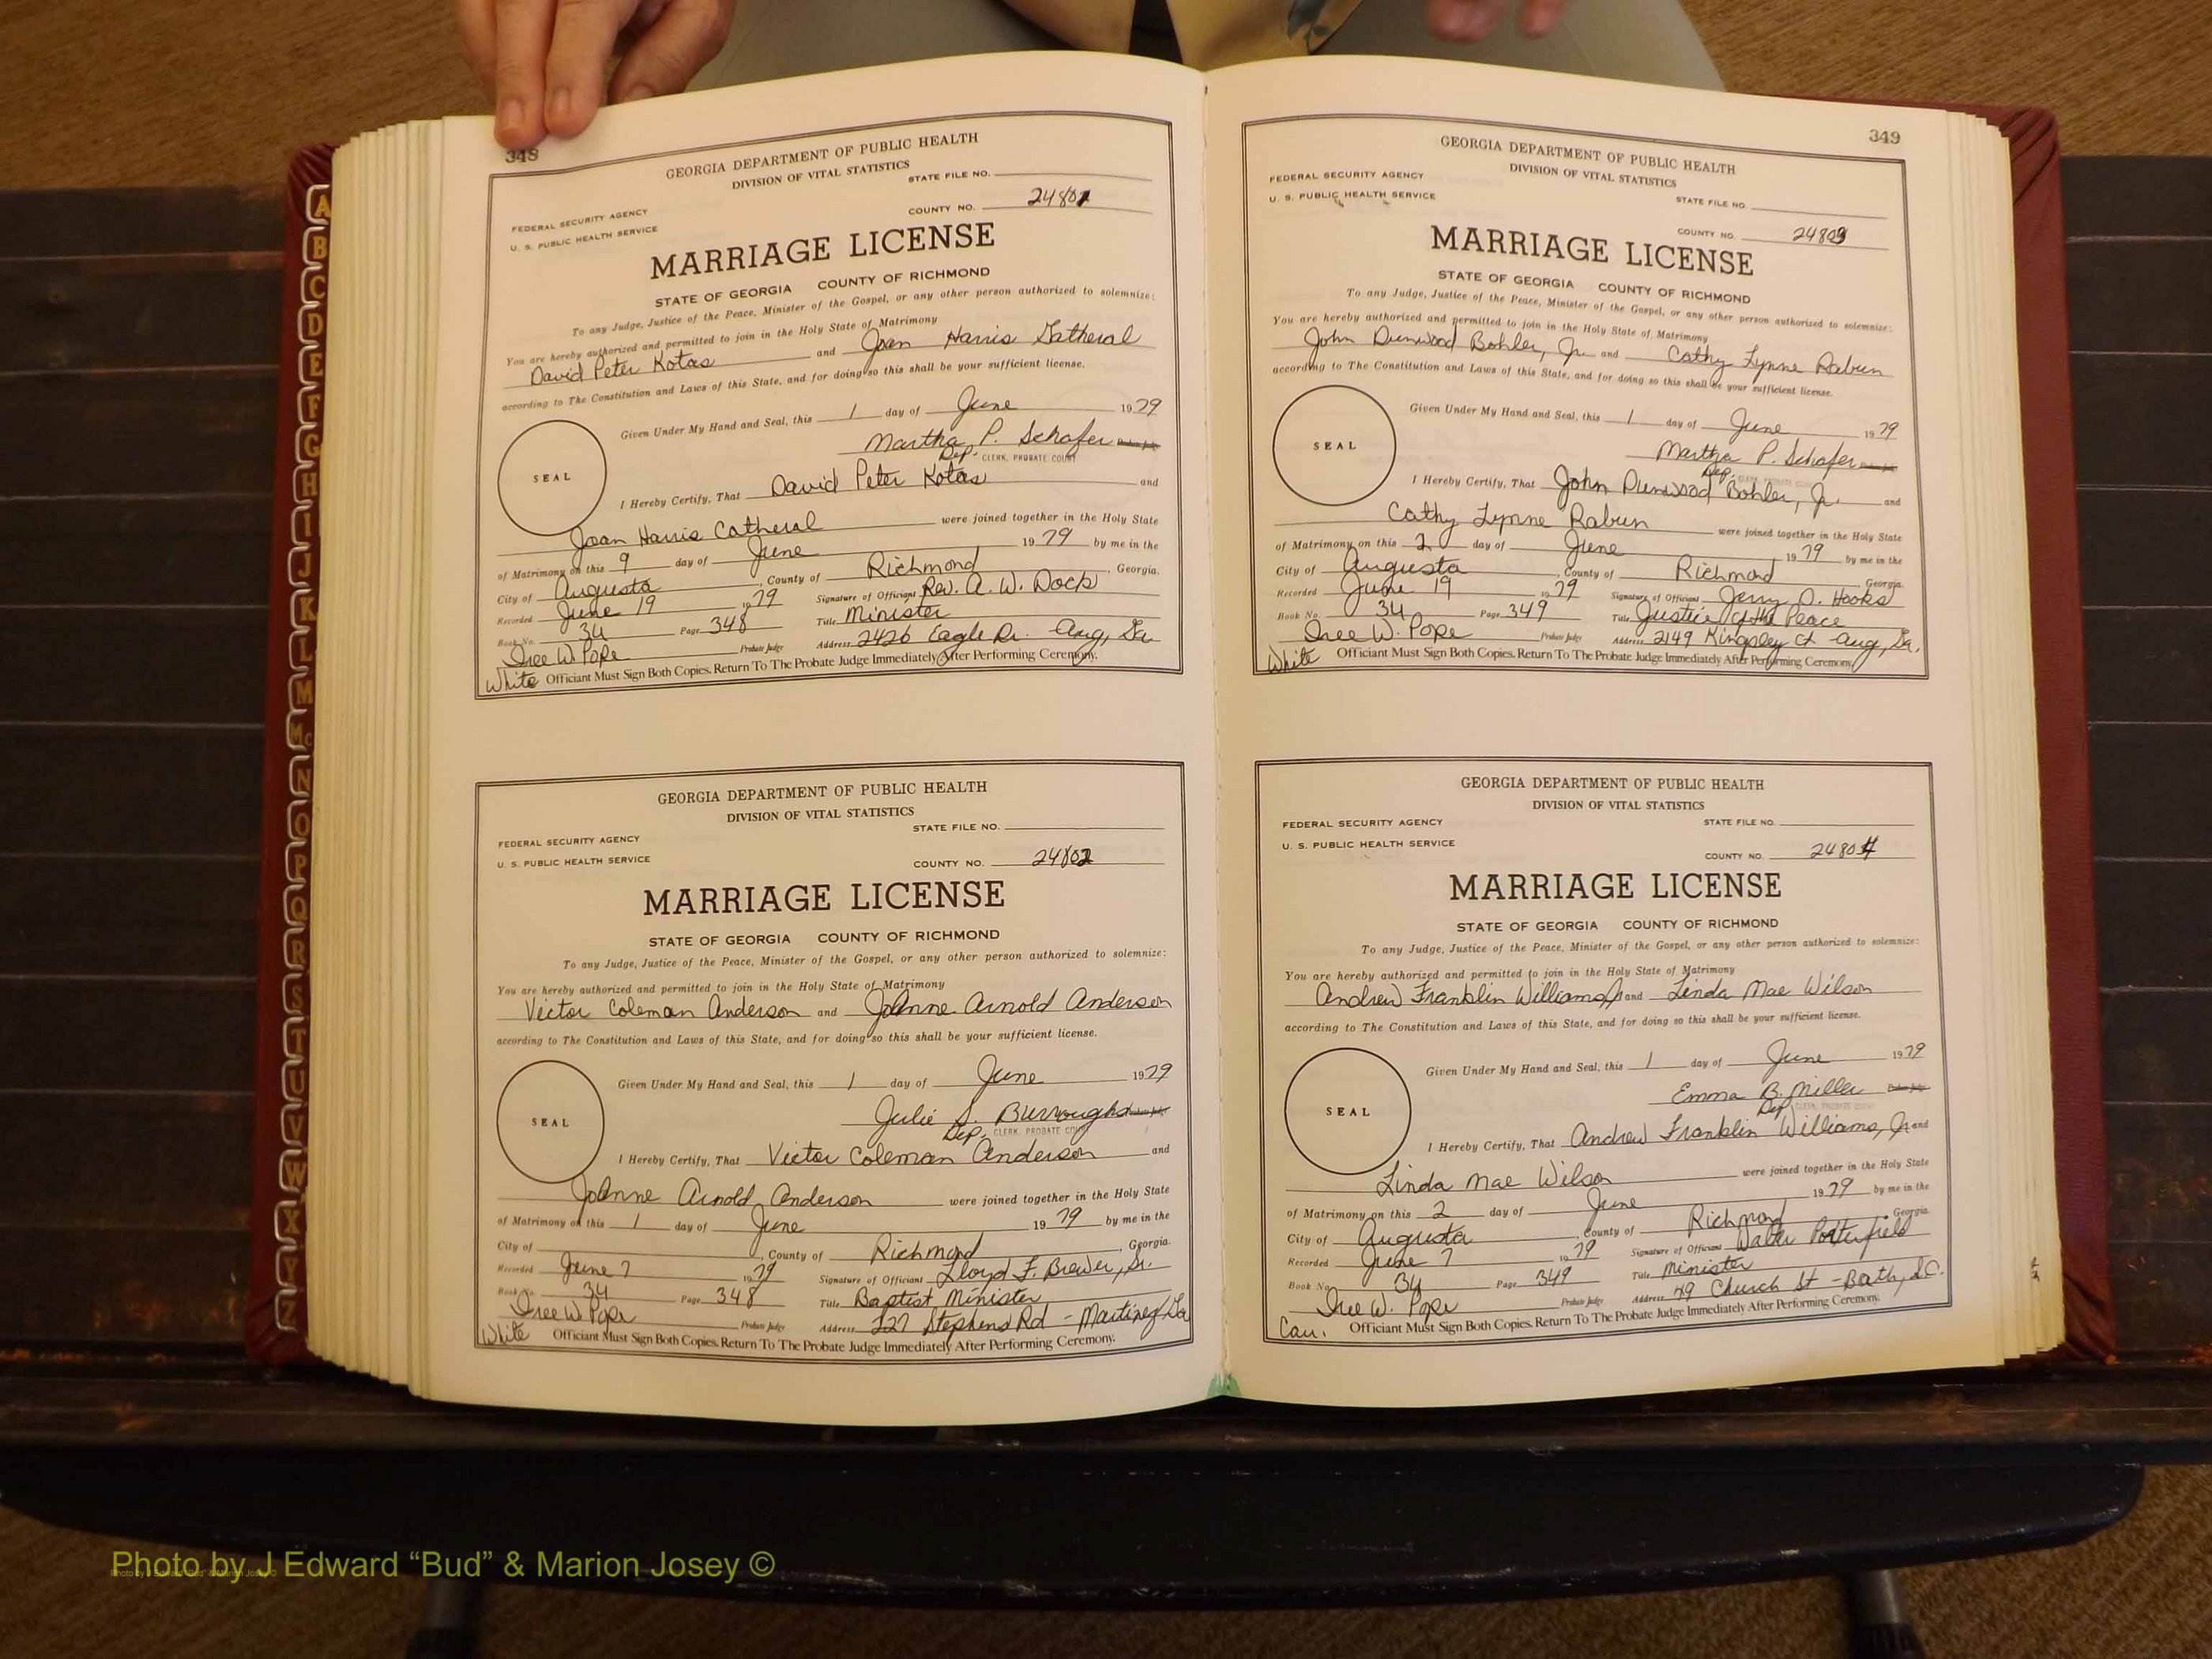 348
GEORGIA DEPARTMENT OF PUBLIC HEALTH
DIVISION OF VITAL STATISTICS
STATE FILE NO.
FEDERAL SECURITY AGENCY
U. S. PUBLIC HEALTH SERVICE
COUNTY NO. 24801
MARRIAGE LICENSE
STATE OF GEORGIA COUNTY OF RICHMOND
To any Judge, Justice of the Peace, Minister of the Gospel, or any other person authorized to solemnize:
You are hereby authorized and permitted to join in the Holy State of Matrimony
David Peter Kotas and Joan Harris Catheral
according to The Constitution and Laws of this State, and for doing so this shall be your sufficient license.
Given Under My Hand and Seal, this 1 day of June 1979
SEAL
Martha P. Schafer Probate Judge
Dep. CLERK, PROBATE COURT
I Hereby Certify, That David Peter Kotas and
Joan Harris Catheral were joined together in the Holy State
of Matrimony on this 9 day of June 1979 by me in the
City of Augusta, County of Richmond, Georgia.
Recorded June 19 1979 Signature of Officiant Rev. A. W. Dock
Book No. 34 Page 348 Title Minister
Iree W. Pope Probate Judge Address 2426 Eagle Dr. Aug, Ga
White Officiant Must Sign Both Copies. Return To The Probate Judge Immediately After Performing Ceremony.
GEORGIA DEPARTMENT OF PUBLIC HEALTH
DIVISION OF VITAL STATISTICS
STATE FILE NO.
FEDERAL SECURITY AGENCY
U. S. PUBLIC HEALTH SERVICE
COUNTY NO. 24802
MARRIAGE LICENSE
STATE OF GEORGIA COUNTY OF RICHMOND
To any Judge, Justice of the Peace, Minister of the Gospel, or any other person authorized to solemnize:
You are hereby authorized and permitted to join in the Holy State of Matrimony
Victor Coleman Anderson and JoAnne Arnold Anderson
according to The Constitution and Laws of this State, and for doing so this shall be your sufficient license.
Given Under My Hand and Seal, this 1 day of June 1979
SEAL
Julie S. Burroughs Probate Judge
Dep. CLERK, PROBATE COURT
I Hereby Certify, That Victor Coleman Anderson and
JoAnne Arnold Anderson were joined together in the Holy State
of Matrimony on this 1 day of June 1979 by me in the
City of , County of Richmond, Georgia.
Recorded June 7 1979 Signature of Officiant Lloyd F. Brewer, Sr.
Book No. 34 Page 348 Title Baptist Minister
Iree W. Pope Probate Judge Address 227 Stephens Rd - Martinez, Ga
White Officiant Must Sign Both Copies. Return To The Probate Judge Immediately After Performing Ceremony.
349
GEORGIA DEPARTMENT OF PUBLIC HEALTH
DIVISION OF VITAL STATISTICS
FEDERAL SECURITY AGENCY
U. S. PUBLIC HEALTH SERVICE
STATE FILE NO.
COUNTY NO. 24803
MARRIAGE LICENSE
STATE OF GEORGIA COUNTY OF RICHMOND
To any Judge, Justice of the Peace, Minister of the Gospel, or any other person authorized to solemnize:
You are hereby authorized and permitted to join in the Holy State of Matrimony
John Dunwood Bohler, Jr. and Cathy Lynne Rabun
according to The Constitution and Laws of this State, and for doing so this shall be your sufficient license.
Given Under My Hand and Seal, this 1 day of June 1979
SEAL
Martha P. Schafer Probate Judge
Dep. CLERK, PROBATE COURT
I Hereby Certify, That John Dunwood Bohler, Jr. and
Cathy Lynne Rabun were joined together in the Holy State
of Matrimony on this 2 day of June 1979 by me in the
City of Augusta, County of Richmond, Georgia.
Recorded June 19 1979 Signature of Officiant Jerry D. Hooks
Book No. 34 Page 349 Title Justice of the Peace
Iree W. Pope Probate Judge Address 2149 Kingsley Ct - Aug, Ga.
White Officiant Must Sign Both Copies. Return To The Probate Judge Immediately After Performing Ceremony.
GEORGIA DEPARTMENT OF PUBLIC HEALTH
DIVISION OF VITAL STATISTICS
FEDERAL SECURITY AGENCY
STATE FILE NO.
U. S. PUBLIC HEALTH SERVICE
COUNTY NO. 24804
MARRIAGE LICENSE
STATE OF GEORGIA COUNTY OF RICHMOND
To any Judge, Justice of the Peace, Minister of the Gospel, or any other person authorized to solemnize:
You are hereby authorized and permitted to join in the Holy State of Matrimony
Andrew Franklin Williams, Jr and Linda Mae Wilson
according to The Constitution and Laws of this State, and for doing so this shall be your sufficient license.
Given Under My Hand and Seal, this 1 day of June 1979
SEAL
Emma B. Miller Probate Judge
Dep. CLERK, PROBATE COURT
I Hereby Certify, That Andrew Franklin Williams, Jr and
Linda Mae Wilson were joined together in the Holy State
of Matrimony on this 2 day of June 1979 by me in the
City of Augusta, County of Richmond, Georgia.
Recorded June 7 1979 Signature of Officiant Walter Porterfield
Book No. 34 Page 349 Title Minister
Iree W. Pope Probate Judge Address 49 Church St - Bath, S.C.
Cau. Officiant Must Sign Both Copies. Return To The Probate Judge Immediately After Performing Ceremony.
A
B
C
D
E
F
G
H
I
J
K
L
M
Mc
N
O
P
Q
R
S
T
U
V
W
X
Y
Z
Photo by J Edward “Bud” & Marion Josey ©
Photo by J Edward "Bud" & Marion Josey ©